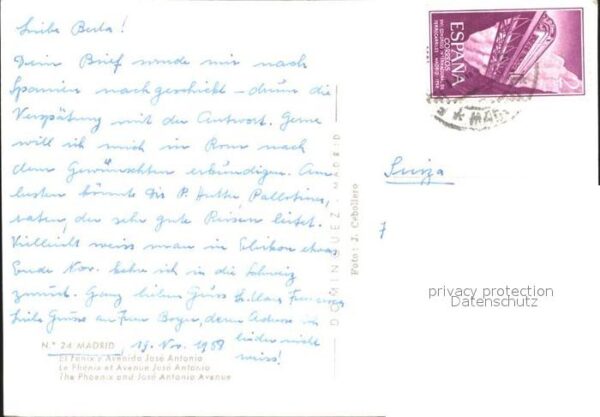 Liebe Berta!
Dein Brief wurde mir nach
Spanien nachgeschickt - drum die
Verspätung mit der Antwort. Gerne
will ich mich in Rom nach
dem Gewünschten erkündigen. Am
besten könnte Dir P. Pallotiner,
raten, der sehr gute Reisen leitet.
Vielleicht weiss man in etwas
Ende Nov. kehre ich in die Schweiz
zurück. Ganz lieben Gruss
Liebe Grüsse an Frau deren Adresse ich
leider nicht
weiss!
19. Nov. 1958
N.º 24 MADRID
El Fénix y Avenida José Antonio
Le Phénix et Avenue José Antonio
The Phoenix and José Antonio Avenue
DOMINGUEZ - MADRID
Foto: J. Cebollero
ESPAÑA
CORREOS
MAD
Suiza
7
privacy protection
Datenschutz